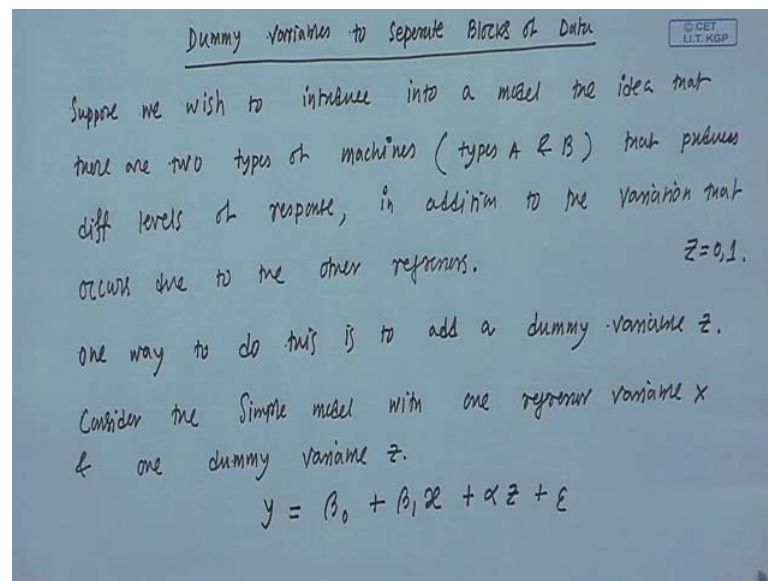 Dummy Variables to Seperate Blocks of Data
© CET
I.I.T. KGP
Suppose we wish to introduce into a model the idea that
there are two types of machines ( types A & B ) that produces
diff levels of response, in addition to the variation that
occurs due to the other regressors.
Z=0,1.
One way to do this is to add a dummy variable Z.
Consider the Simple model with one regressor variable X
& one dummy variable Z.
y = β₀ + β₁ x + α z + ε